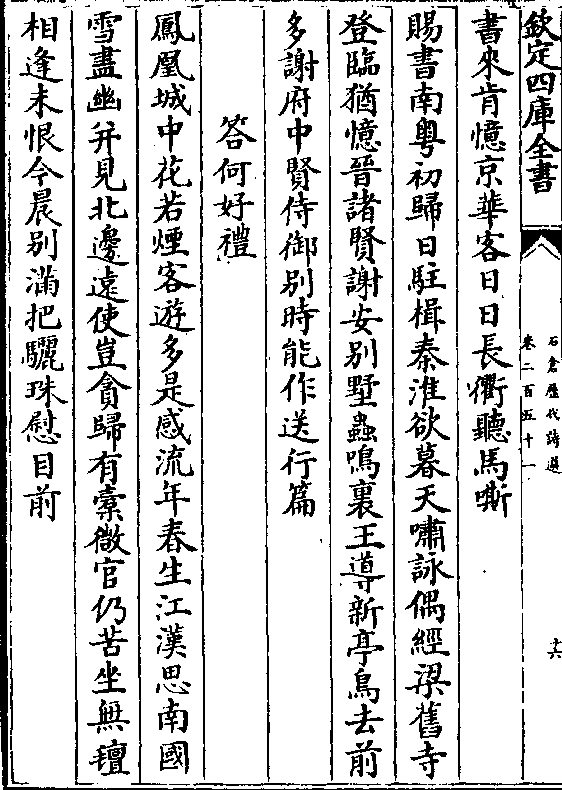 欽定四庫全書
石倉歷代詩選
卷二百五十一
十六
書來肯憶京華客日日長衢聽馬嘶
賜書南粤初歸日駐楫秦淮欲暮天嘯詠偶經梁舊寺
登臨猶憶晉諸賢謝安别墅蟲鳴裏王導新亭鳥去前
多謝府中賢侍御别時能作送行篇
答何好禮
鳳凰城中花若煙客遊多是感流年春生江漢思南國
雪盡幽并見北邊遠使豈貪歸有橐微官仍苦坐無氊
相逢未恨今晨别滿把驪珠慰目前